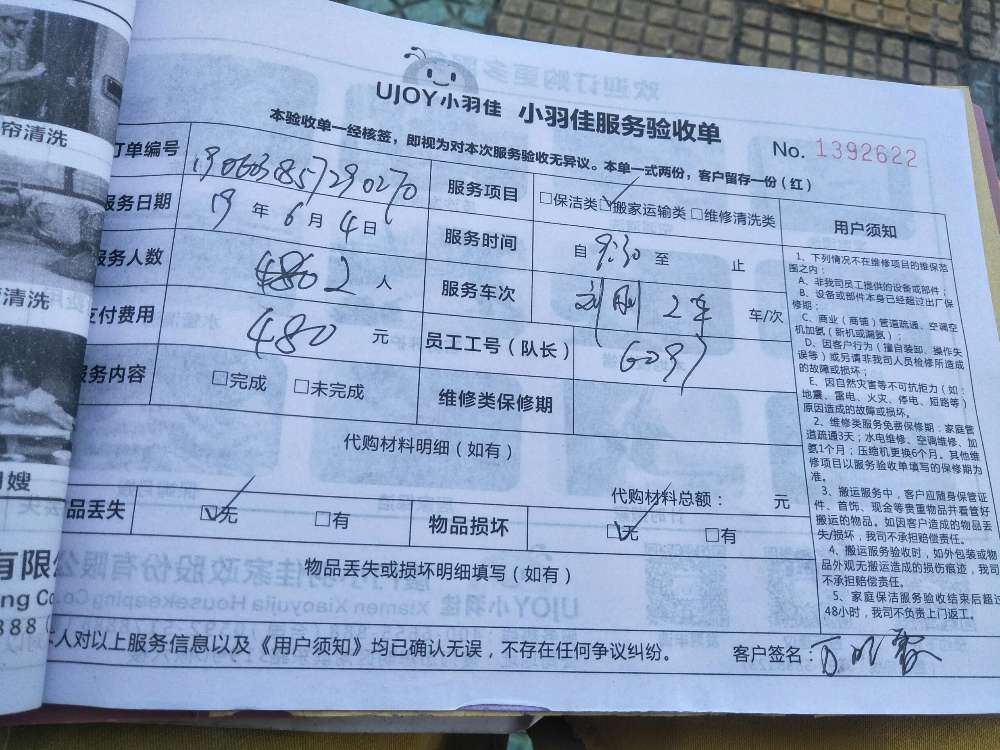 帘清洗
清洗
嫂
有限公
ng Co
888
UJOY小羽佳 小羽佳服务验收单
No. 1392622
本验收单一经核签，即视为对本次服务验收无异议。本单一式两份，客户留存一份（红）
订单编号 服务项目 □保洁类 ☑搬家运输类 □维修清洗类
服务日期 19 年 6 月 4 日 服务时间 自 9:30 至 止
服务人数 2 人 服务车次 刘刚 2车 车/次
支付费用 480 元 员工工号（队长） 6037
服务内容 □完成 □未完成 维修类保修期
代购材料明细（如有）
代购材料总额： 元
品丢失 ☑无 □有 物品损坏 ☑无 □有
物品丢失或损坏明细填写（如有）
人对以上服务信息以及《用户须知》均已确认无误，不存在任何争议纠纷。 客户签名：
用户须知
1、下列情况不在维修项目的维保范
围之内：
A、非我司员工提供的设备或部件；
B、设备或部件本身已经超过出厂保
修期；
C、商业（商铺）管道疏通、空调空
机加氨（新机或漏氨）；
D、因客户行为（撞自装卸、操作失
误等）或另请非我司人员检修所造成
的故障或损坏；
E、因自然灾害等不可抗拒力（如：
地震、雷电、火灾、停电、短路等）
原因造成的故障或损坏。
2、维修类服务免费保修期：家庭管
道疏通3天；水电维修、空调维修、加
氨1个月；压缩机更换6个月。其他维
修项目以服务验收单填写的保修期为
准。
3、搬运服务中，客户应随身保管证
件、首饰、现金等贵重物品并看管好
搬运的物品。如因客户造成的物品丢
失/损坏，我司不承担赔偿责任。
4、搬运服务验收时，如外包装或物
品外观无搬运造成的损伤痕迹，我司
不承担赔偿责任。
5、家庭保洁服务验收结束后超过
48小时，我司不负责上门返工。